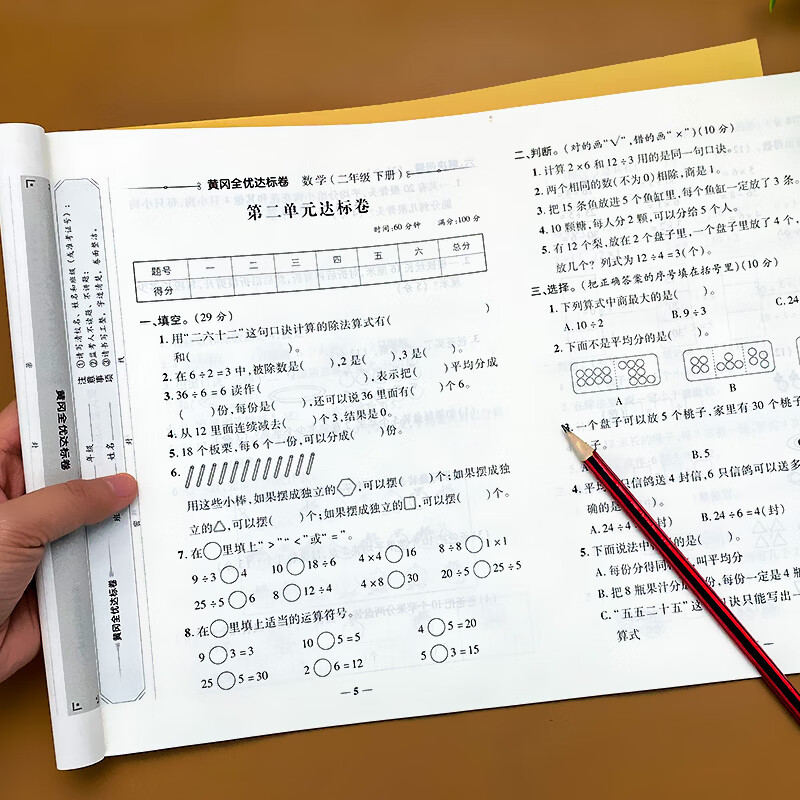 黄冈全优达标卷 数学(二年级 下册)
第二单元达标卷
时间:60分钟 满分:100分
题号 一 二 三 四 五 六 总分
得分
一、填空。(29分)
1. 用“二六十二”这句口诀计算的除法算式有( )
和( )。
2. 在6÷2=3中,被除数是( ),2是( ),3是( )。
3. 36÷6=6读作( ),表示把( )平均分成
( )份,每份是( ),还可以说36里面有( )个6。
4. 从12里面连续减去( )个3,结果是0。
5. 18个板栗,每6个一份,可以分成( )份。
6.
用这些小棒,如果摆成独立的⬡,可以摆( )个;如果摆成独
立的△,可以摆( )个;如果摆成独立的□,可以摆( )个。
7. 在○里填上“>”“<”或“=”。
9÷3○4 10○18÷6 4×4○16 8÷8○1×1
25÷5○6 8○12÷4 4×8○30 20÷5○25÷5
8. 在○里填上适当的运算符号。
9○3=3 10○5=5 4○5=20
25○5=30 2○6=12 5○3=15
— 5 —
二、判断。(对的画“√”,错的画“×”)(10分)
1. 计算2×6和12÷3用的是同一句口诀。
2. 两个相同的数(不为0)相除,商是1。
3. 把15条鱼放进5个鱼缸里,每个鱼缸一定放了3条。
4. 10颗糖,每人分2颗,可以分给5个人。
5. 有12个梨,放在2个盘子里,一个盘子里放了4个,
放几个? 列式为12÷4=3(个)。
三、选择。(把正确答案的序号填在括号里)(10分)
1. 下列算式中商最大的是( )。
A. 10÷2 B. 9÷3 C. 24
2. 下面不是平均分的是( )。
A B
一个盘子可以放5个桃子,家里有30个桃子
子。
B. 5
4. 平均 只信鸽送4封信,6只信鸽可以送多
确的是( )。
A. 24÷4 封) B. 24÷6=4(封)
5. 下面说法中 的是( )。
A. 每份分得同 ,叫平均分
B. 把8瓶果汁分成 份,每份一定是4瓶
C. “五五二十五”这 口诀只能写出一
算式
①请写清校名、姓名和班级(或准考证号);
②监考人不读题、不讲题;
③请书写工整,字迹清楚,卷面整洁。
注意事项
黄冈全优达标卷
年级
姓名
班
封
线
密
黄冈全优达标卷